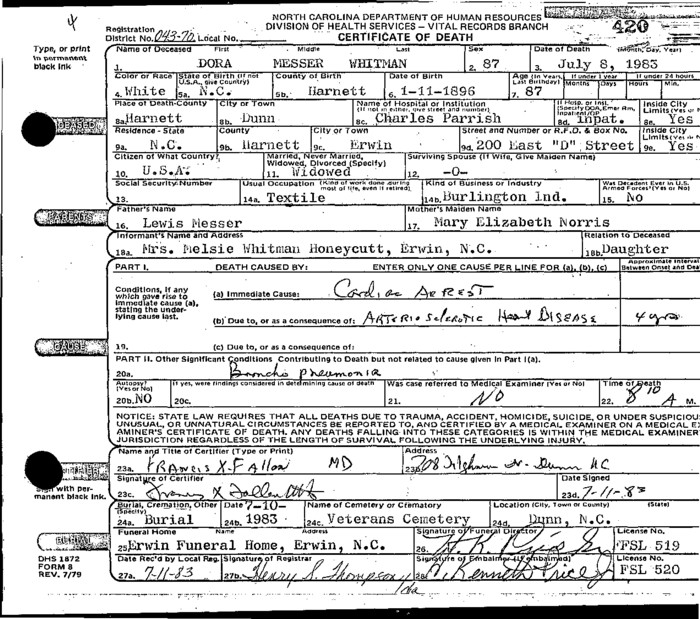 4
NORTH CAROLINA DEPARTMENT OF HUMAN RESOURCES
DIVISION OF HEALTH SERVICES – VITAL RECORDS BRANCH
CERTIFICATE OF DEATH
420
Registration
District No. 043-70 Local No.
Type, or print
in permanent
black ink
Name of Deceased First Middle Last Sex Date of Death (Month, Day, Year)
1. DORA MESSER WHITMAN 2. 87 3. July 8, 1983
Color or Race State of Birth (If not U.S.A., give Country) County of Birth Date of Birth Age (In Years, Last Birthday) If under 1 year Months Days If under 24 hours Hours Min.
4. White 5a. N.C. 5b. Harnett 6. 1-11-1896 7. 87
DECEASED
Place of Death-County City or Town Name of Hospital or Institution (If not in either, give street and number) If Hosp. or Inst. (Specify DOA, Emer Rm, Inpatient/OP Inside City Limits (Yes or
8a. Harnett 8b. Dunn 8c. Charles Parrish 8d. Inpat. 8e. Yes
Residence - State County City or Town Street and Number or R.F.D. & Box No. Inside City Limits (Yes or
9a. N.C. 9b. Harnett 9c. Erwin 9d. 200 East "D" Street 9e. Yes
Citizen of What Country? Married, Never Married, Widowed, Divorced (Specify) Surviving Spouse (If Wife, Give Maiden Name)
10. U.S.A. 11. Widowed 12. -0-
Social Security Number Usual Occupation (Kind of work done during most of life, even if retired) Kind of Business or Industry Was Decedent Ever in U.S. Armed Forces? (Yes or No)
13. 14a. Textile 14b. Burlington Ind. 15. No
PARENTS
Father's Name Mother's Maiden Name
16. Lewis Messer 17. Mary Elizabeth Norris
Informant's Name and Address Relation to Deceased
18a. Mrs. Melsie Whitman Honeycutt, Erwin, N.C. 18b. Daughter
PART I. DEATH CAUSED BY: ENTER ONLY ONE CAUSE PER LINE FOR (a), (b), (c) Approximate Interval Between Onset and Dea
Conditions, if any
which gave rise to
immediate cause (a),
stating the under-
lying cause last.
(a) Immediate Cause: Cardiac Arrest
(b) Due to, or as a consequence of: Arterio sclerotic Heart Disease 4 yrs
CAUSE
19. (c) Due to, or as a consequence of:
PART II. Other Significant Conditions Contributing to Death but not related to cause given in Part I(a).
20a. Broncho pneumonia
Autopsy? (Yes or No) If yes, were findings considered in determining cause of death Was case referred to Medical Examiner (Yes or No) Time of Death
20b. NO 20c. 21. NO 22. 8 10 A M.
NOTICE: STATE LAW REQUIRES THAT ALL DEATHS DUE TO TRAUMA, ACCIDENT, HOMICIDE, SUICIDE, OR UNDER SUSPICIOU
UNUSUAL, OR UNNATURAL CIRCUMSTANCES BE REPORTED TO, AND CERTIFIED BY A MEDICAL EXAMINER ON A MEDICAL E
AMINER'S CERTIFICATE OF DEATH. ANY DEATHS FALLING INTO THESE CATEGORIES IS WITHIN THE MEDICAL EXAMINER
JURISDICTION REGARDLESS OF THE LENGTH OF SURVIVAL FOLLOWING THE UNDERLYING INJURY.
Name and Title of Certifier (Type or Print) Address
23a. FRANCIS X. FALLON MD 23b. 708 Tilghman Dr. Dunn NC
Sign with per-
manent black ink.
Signature of Certifier Date Signed
23c. Francis X Fallon 23d. 7-11-83
Burial, Cremation, Other (Specify) Date Name of Cemetery or Crematory Location (City, Town or County) (State)
24a. Burial 24b. 7-10-1983 24c. Veterans Cemetery 24d. Dunn, N.C.
BURIAL
Funeral Home Name Address Signature of Funeral Director License No.
25. Erwin Funeral Home, Erwin, N.C. 26. FSL 519
DHS 1872
FORM 8
REV. 7/79
Date Rec'd by Local Reg. Signature of Registrar Signature of Embalmer (If embalmed) License No.
27a. 7-11-83 27b. Henry S. Thompson 28. Kenneth Price FSL 520